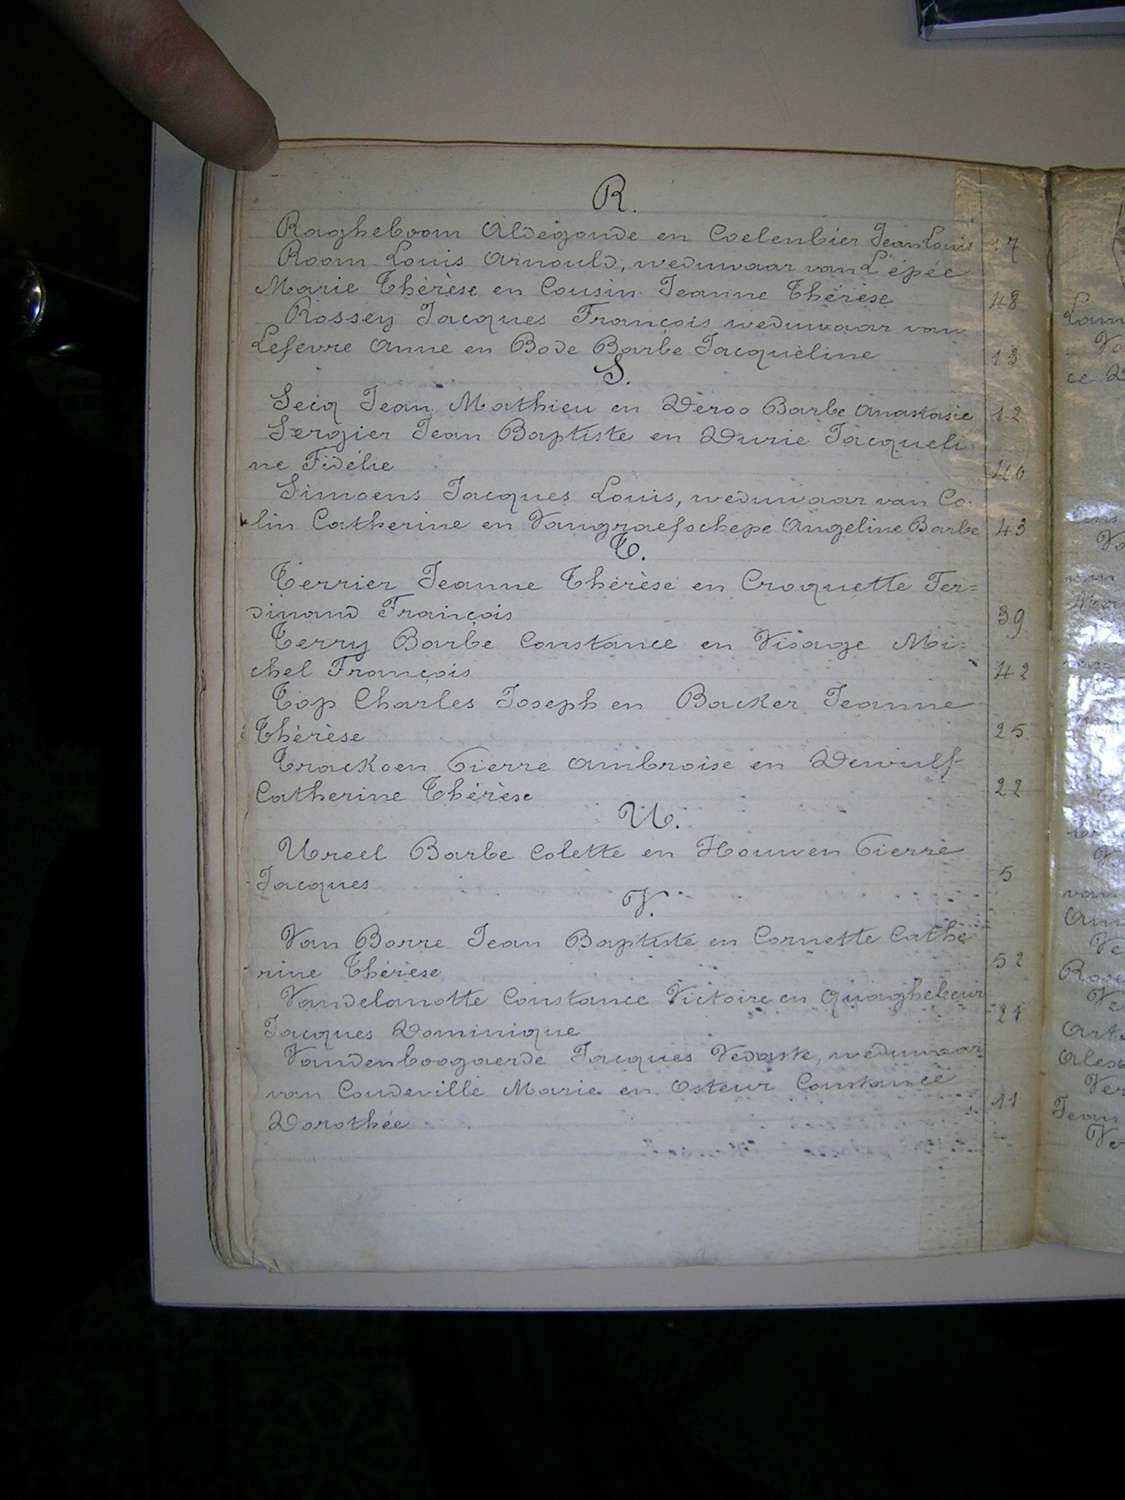 R.
Ragheboom Aldegonde en Coelenbier Jean Louis 17
Room Louis Arnould, weduwaar van L'épée
Marie Thérèse en Cousin Jeanne Thérèse 48
Rossey Jacques François weduwaar van
Lefevre Anne en Bode Barbe Jacqueline 13
S.
Secq Jean Mathieu en Deroo Barbe Anastasie 12
Sergier Jean Baptiste en Durie Jacqueli
ne Fidélie 46
Simoens Jacques Louis, weduwaar van Co-
lin Catherine en Vangraefschepe Angeline Barbe 43
T.
Terrier Jeanne Thérèse en Croquette Fer=
dinand François 39
Terry Barbe Constance en Visage Mi=
chel François 42
Top Charles Joseph en Backer Jeanne
Thérèse 25
Trackoen Pierre Ambroise en Dewulf
Catherine Thérèse 22
U.
Ureel Barbe Colette en Houwen Pierre
Jacques 5
V.
Van Borre Jean Baptiste en Cornette Cathe
rine Thérèse 52
Vandelanotte Constance Victoire en Quaghebeur
Jacques Dominique
Vandenboogaerde Jacques Vedaste, weduwaar
van Coudeville Marie en Osteur Constance
Dorothée 11